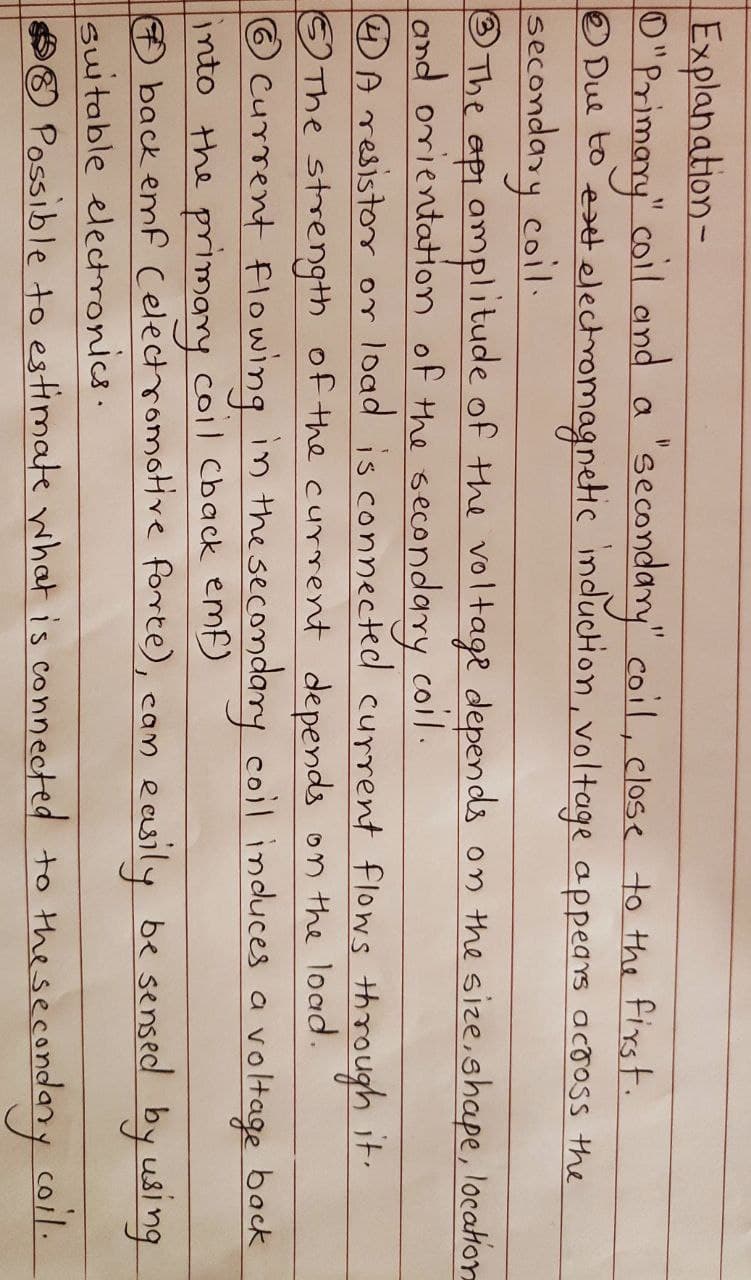 Explanation-
① "Primary" coil and a "secondary" coil, close to the first.
② Due to electromagnetic induction, voltage appears across the
secondary coil.
③ The amplitude of the voltage depends on the size, shape, location
and orientation of the secondary coil.
④ A resistor or load is connected current flows through it.
⑤ The strength of the current depends on the load.
⑥ Current flowing in the secondary coil induces a voltage back
into the primary coil (back emf)
⑦ back emf (electromotive force), can easily be sensed by using
suitable electronics.
⑧ Possible to estimate what is connected to the secondary coil.